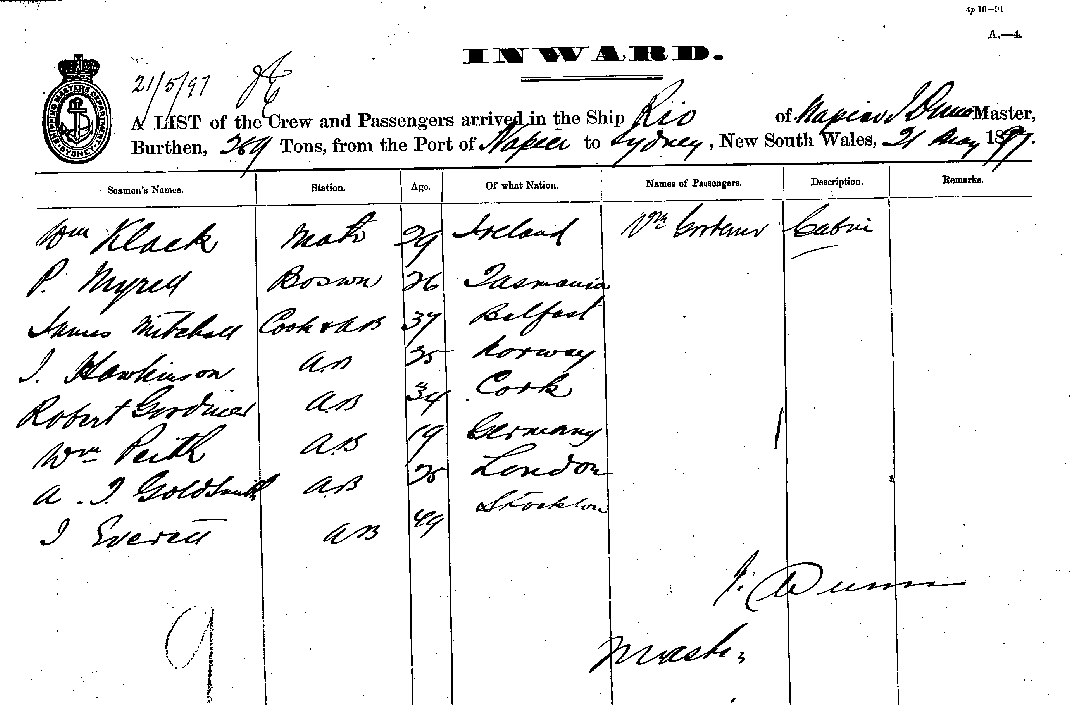 Ap 10-91
A.—4.
INWARD.
21/5/97
A LIST of the Crew and Passengers arrived in the Ship Rio of Napier J Dunn Master,
Burthen, 269 Tons, from the Port of Napier to Sydney, New South Wales, 21 May 1897.
Seamen's Names. Station. Age. Of what Nation. Names of Passengers. Description. Remarks.
Wm Klack Mate 29 Ireland Wm Cabin
P. Myred Boswn 26 Tasmania
James Mitchell Cook & AB 37 Belfast
J. Hawkinson AB 35 Norway
Robert Gordiner AB 34 Cork
Wm Peith AB 19 Germany
A. J. Goldsmith AB 35 London
J Everett AB 49 Stockton
J. Dunn
Master
9